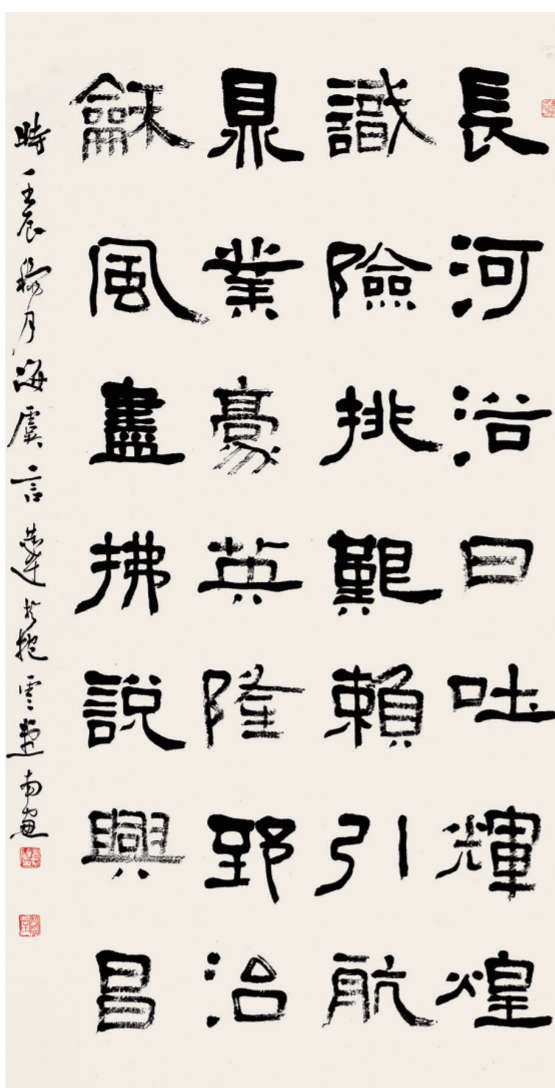 長河浴日吐輝煌
識險挑艱賴引航
鼎業豪英隆郅治
龢風盡拂說興昌
時壬辰 月海虞言恭達於抱雲堂南窗